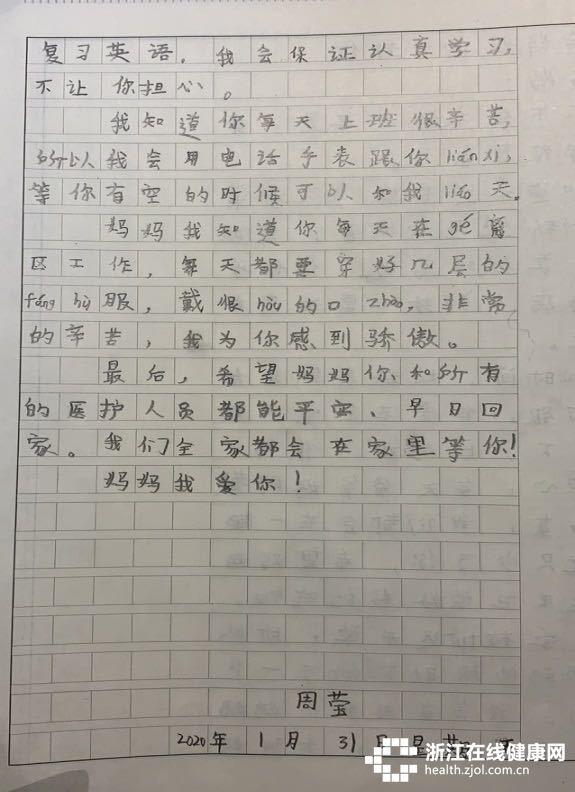 复习英语。我会保证认真学习,
不让你担心。
我知道你每天上班很辛苦,
所以我会用电话手表跟你lián xì,
等你有空的时候可以和我liáo天。
妈妈我知道你每天在gé离
区工作,每天都要穿好几层的
fáng hù服,戴很hòu的口zhào,非常
的辛苦,我为你感到骄傲。
最后,希望妈妈你和所有
的医护人员都能平安、早日回
家。我们全家都会在家里等你!
妈妈我爱你!
周莹
2020年1月31日星期
浙江在线健康网
health.zjol.com.cn